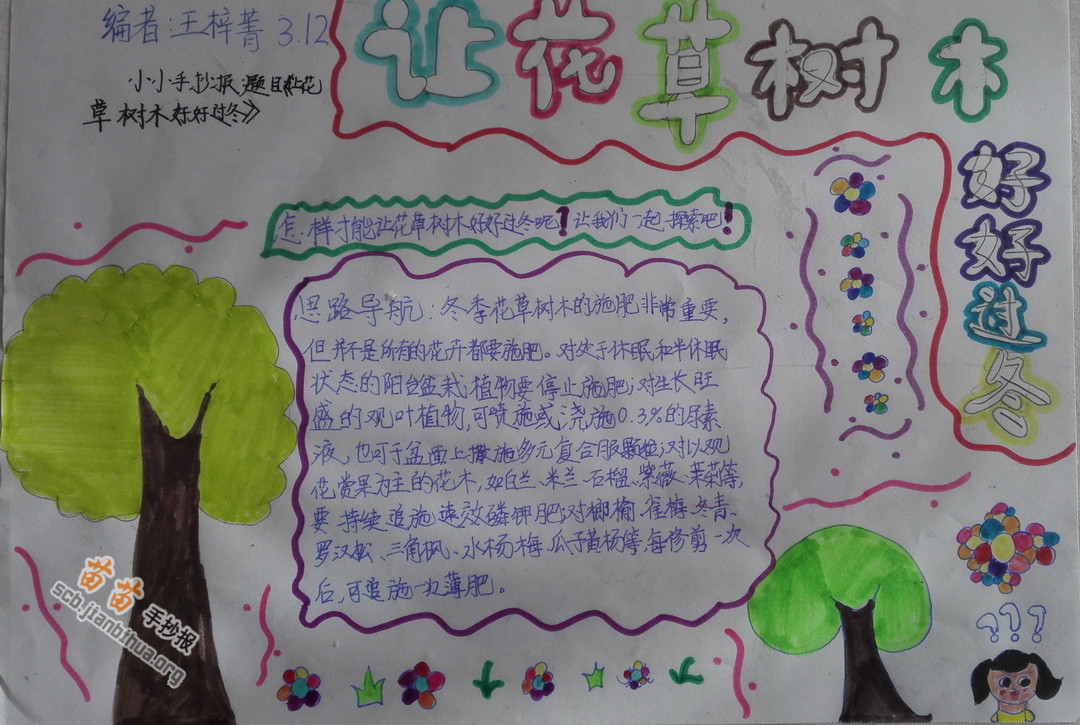 编者:王梓菁 3.12
小小手抄报题目《让花
草树木好好过冬》
让花草树木
好好过冬
怎样才能让花草树木好好过冬呢!让我们一起探索吧!
思路导航:冬季花草树木的施肥非常重要,
但并不是所有的花卉都要施肥。对处于休眠和半休眠
状态的阳台盆栽,植物要停止施肥;对生长旺
盛的观叶植物,可喷施或浇施0.3%的尿素
液,也可于盆面上撒施多元复合肥颗粒;对以观
花赏果为主的花木,如白兰、米兰、石榴、紫薇、茉莉等,
要持续追施速效磷钾肥;对榔榆、雀梅、冬青、
罗汉松、三角枫、水杨梅、瓜子黄杨等,每修剪一次
后,可追施一次薄肥。
???
苗苗手抄报
scb.jianbihua.org